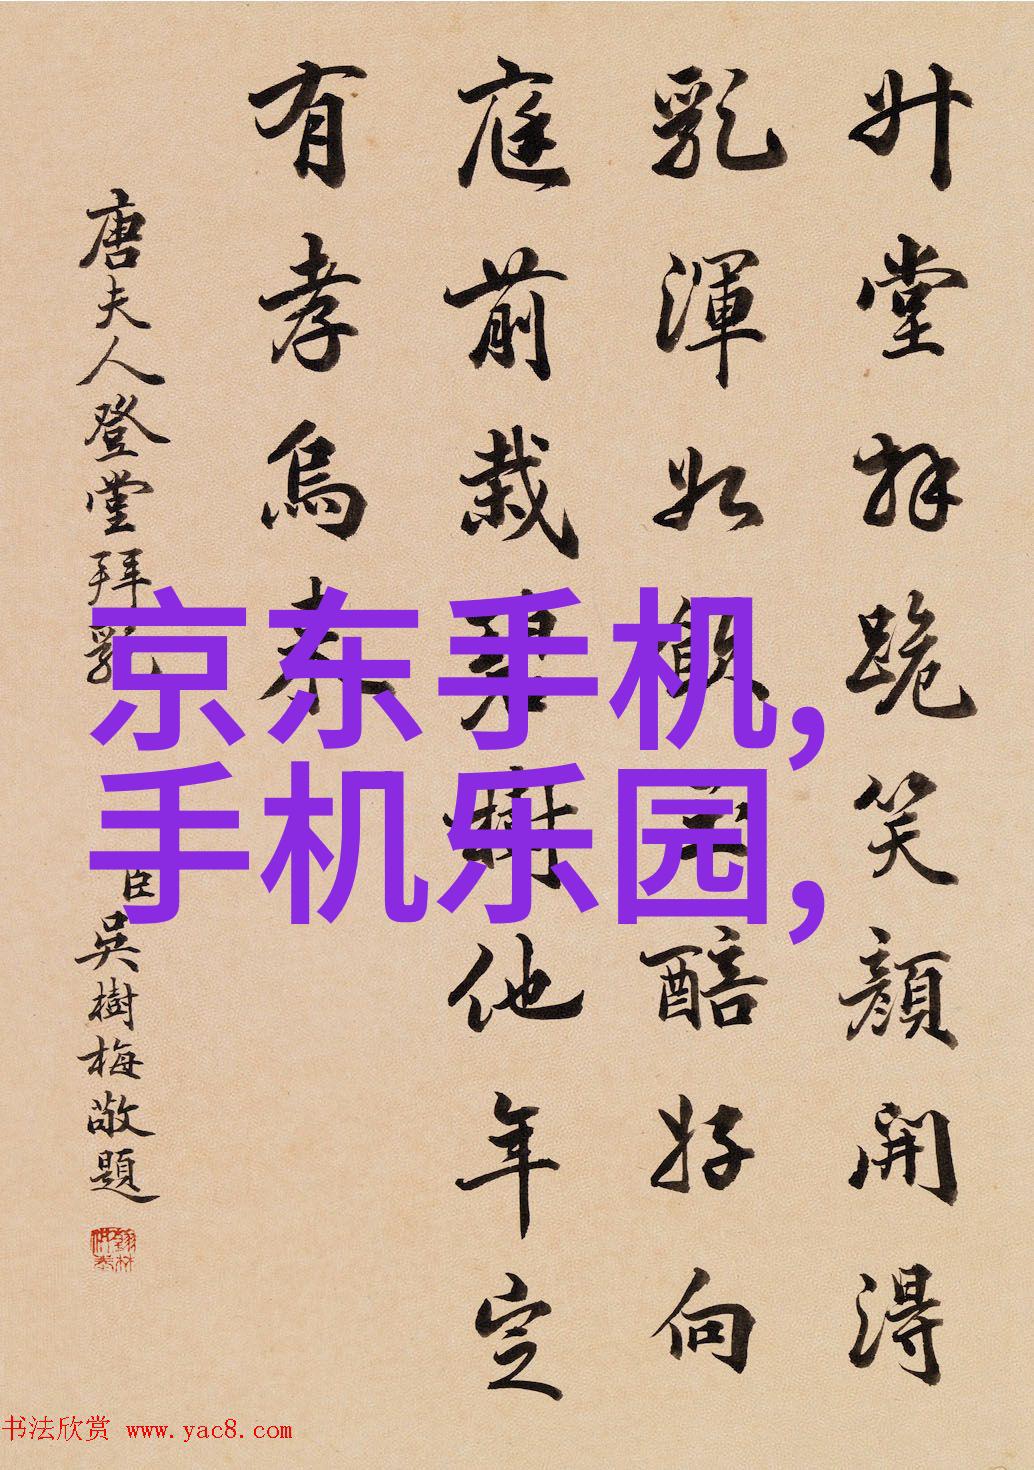 升堂拜跪笑顏開得
乳渾如飲 醅好向
庭前栽碧樹他年定
有孝烏來
唐夫人登堂拜乳
臣吳樹梅敬題
京东手机,
手机乐园,
书法欣赏 www.yac8.com